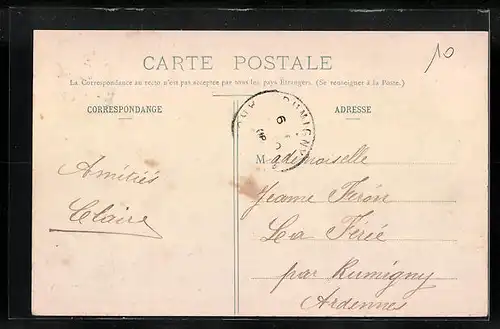 10
CARTE POSTALE
La Correspondance au recto n'est pas acceptée par tous les pays Étrangers. (Se renseigner à la Poste.)
CORRESPONDANCE
ADRESSE
RUMIGNY
6
Amitiés
Claire
Mademoiselle
Jeanne Féron
La Férée
par Rumigny
Ardennes